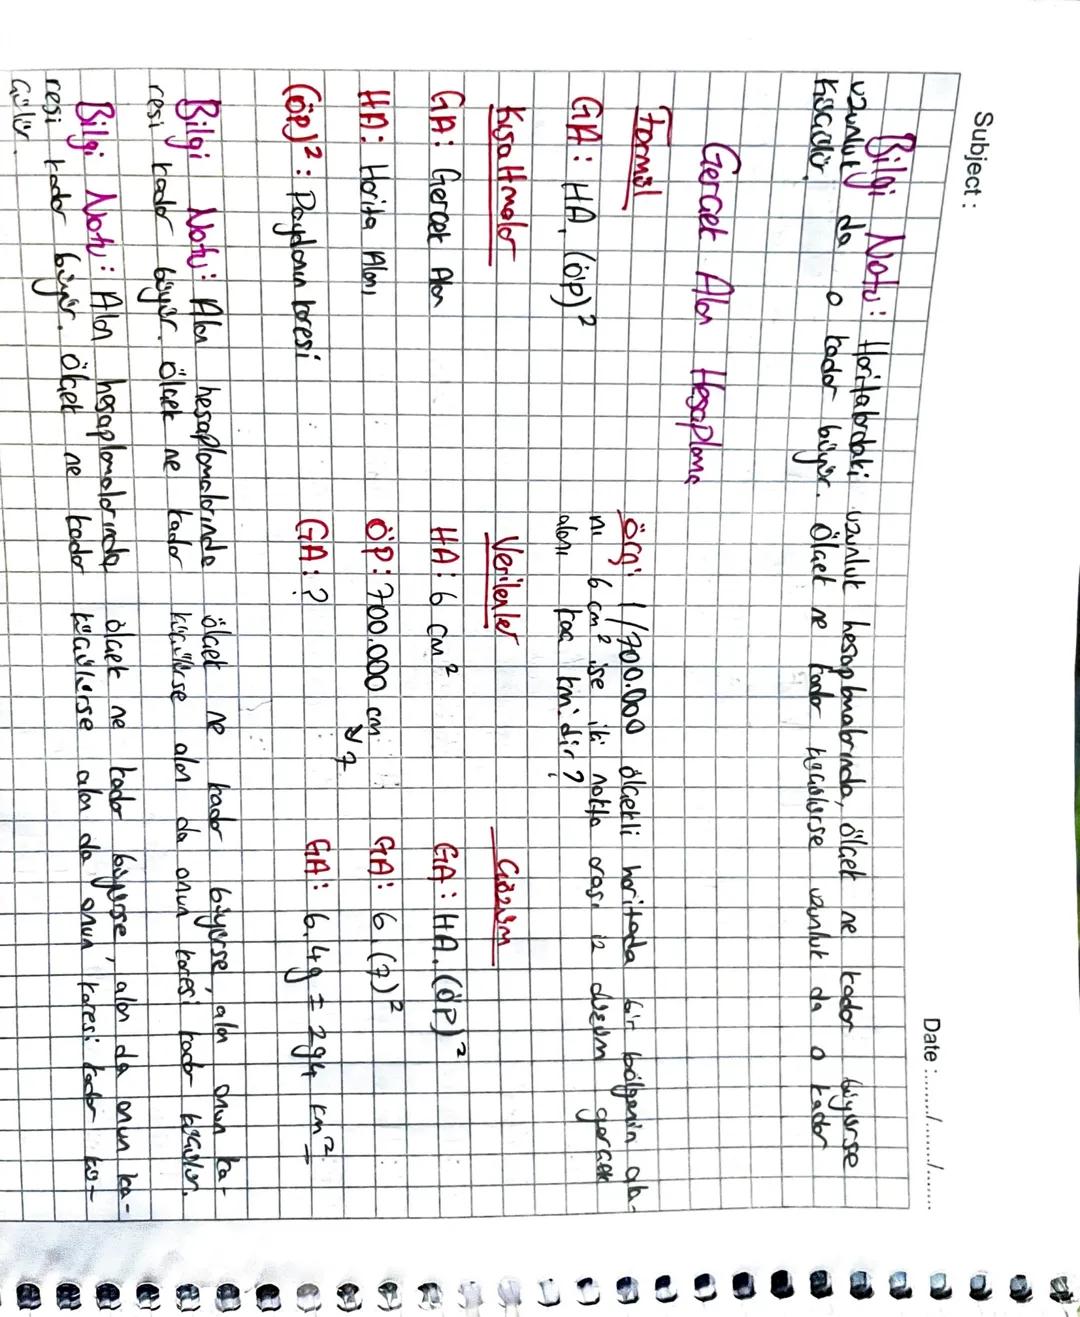 Subject :
Date : ......./......./.......
Bilgi Notu: Haritalardaki uzunluk hesaplamalarında, ölçek ne kadar büyürse
uzunluk da o kadar büyür. Ölçek ne kadar küçülürse uzunluk da o kadar
küçülür.
Gerçek Alan Hesaplama
Formül
GA: HA. (öp)²
Kısaltmalar
GA: Gerçek Alan
HA: Harita Alanı
(öp)²: Paydanın karesi
Örn: 1/700.000 ölçekli haritada bir bölgenin ala-
nı 6 cm² ise iki nokta arası iz düşüm gerçek
alanı kaç km'dir?
Verilenler
HA: 6 cm²
ÖP: 700.000 cm
↓7
GA: ?
Çözüm
GA: HA. (ÖP)²
GA: 6. (7)²
GA: 6.49 = 294 km²
Bilgi Notu: Alan hesaplamalarında ölçek ne kadar büyürse, alan onun ka-
resi kadar büyür. Ölçek ne kadar küçülürse alan da onun karesi kadar küçülür.
Bilgi Notu: Alan hesaplamalarında ölçek ne kadar büyürse, alan da onun ka-
resi kadar büyür. Ölçek ne kadar küçülürse alan da onun karesi kadar kü-
çülür.